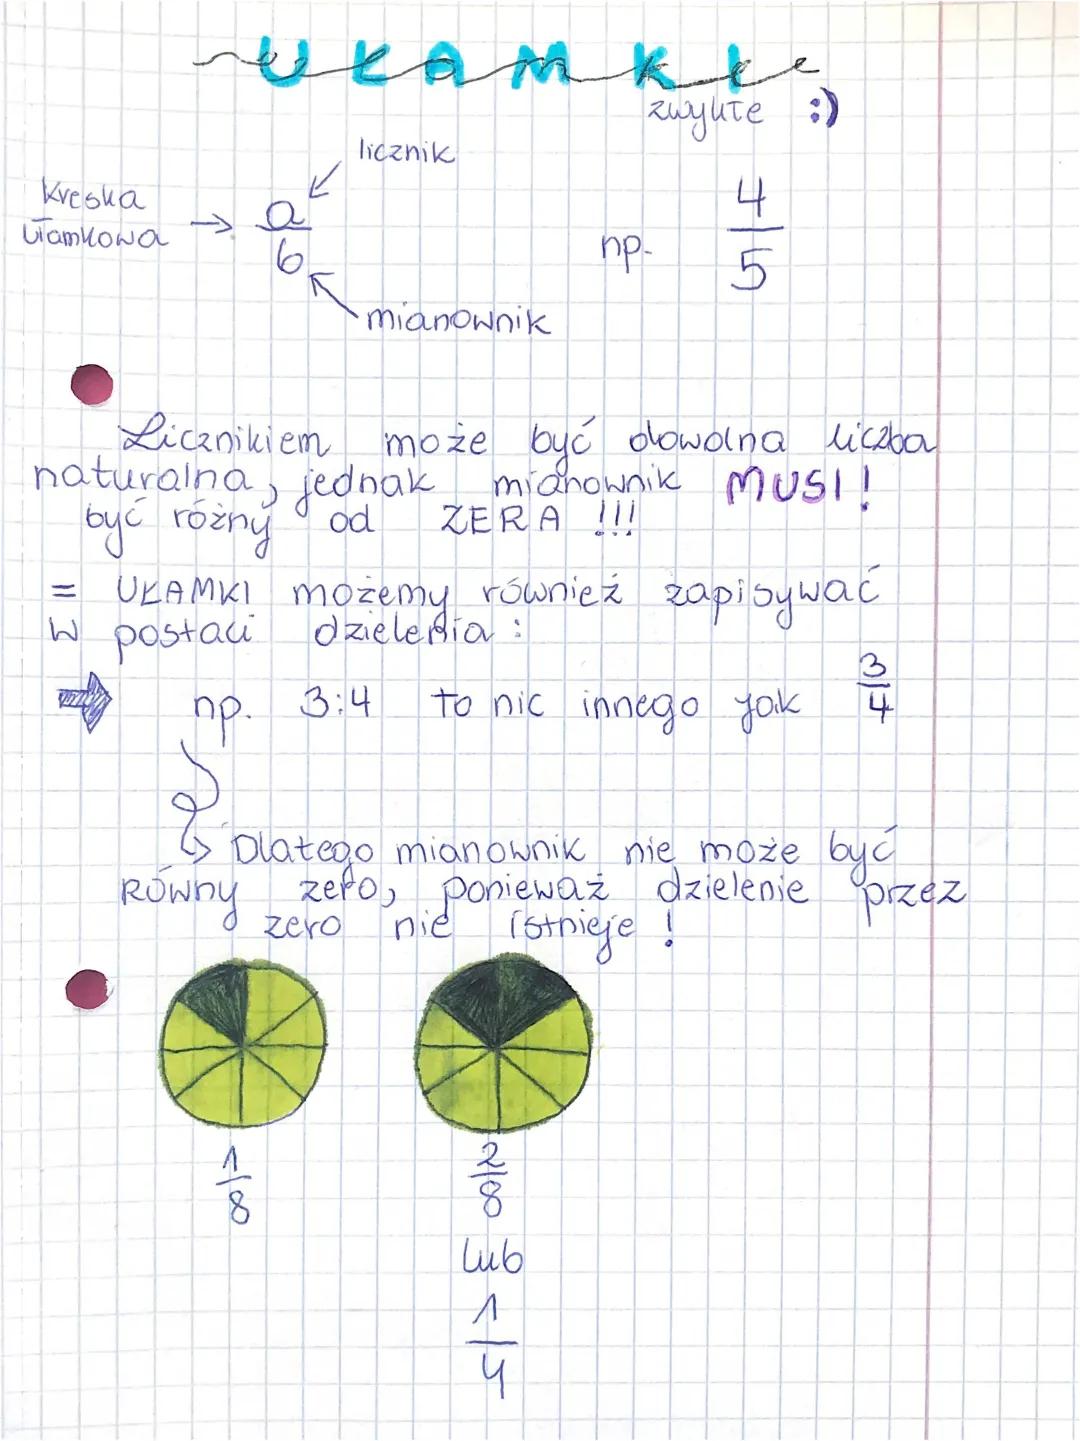 UŁAMKI
zwykłe :)
licznik
kreska
ułamkowa → a/b
np. 4/5
mianownik
Licznikiem może być dowolna liczba
naturalna, jednak mianownik MUSI!
być różny od ZERA !!!
= UŁAMKI możemy również zapisywać
w postaci dzielenia:
np. 3:4 to nic innego jak 3/4
Dlatego mianownik nie może być
RÓWNY zero, ponieważ dzielenie przez
zero nie istnieje!
1/8
2/8
lub
1/4